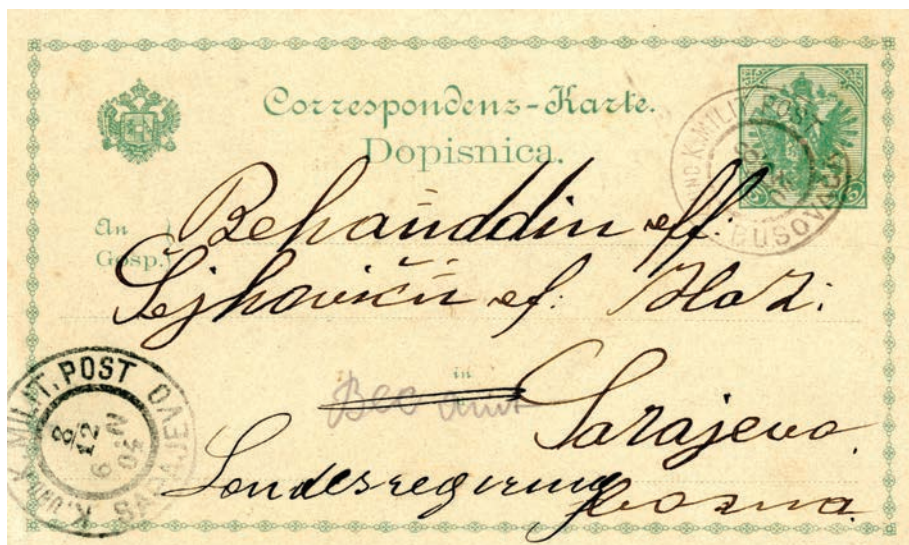 Correspondenz-Karte.
Dopisnica.
K. UND K. MILIT. POST
BUSOVAČA
5 5
An
Gosp.
Behauddin eff.
Šejhovičů ef:
in
Sarajevo
Landesregirung
Bosna
K. UND K. MILIT. POST SARAJEVO
8/12
6 N